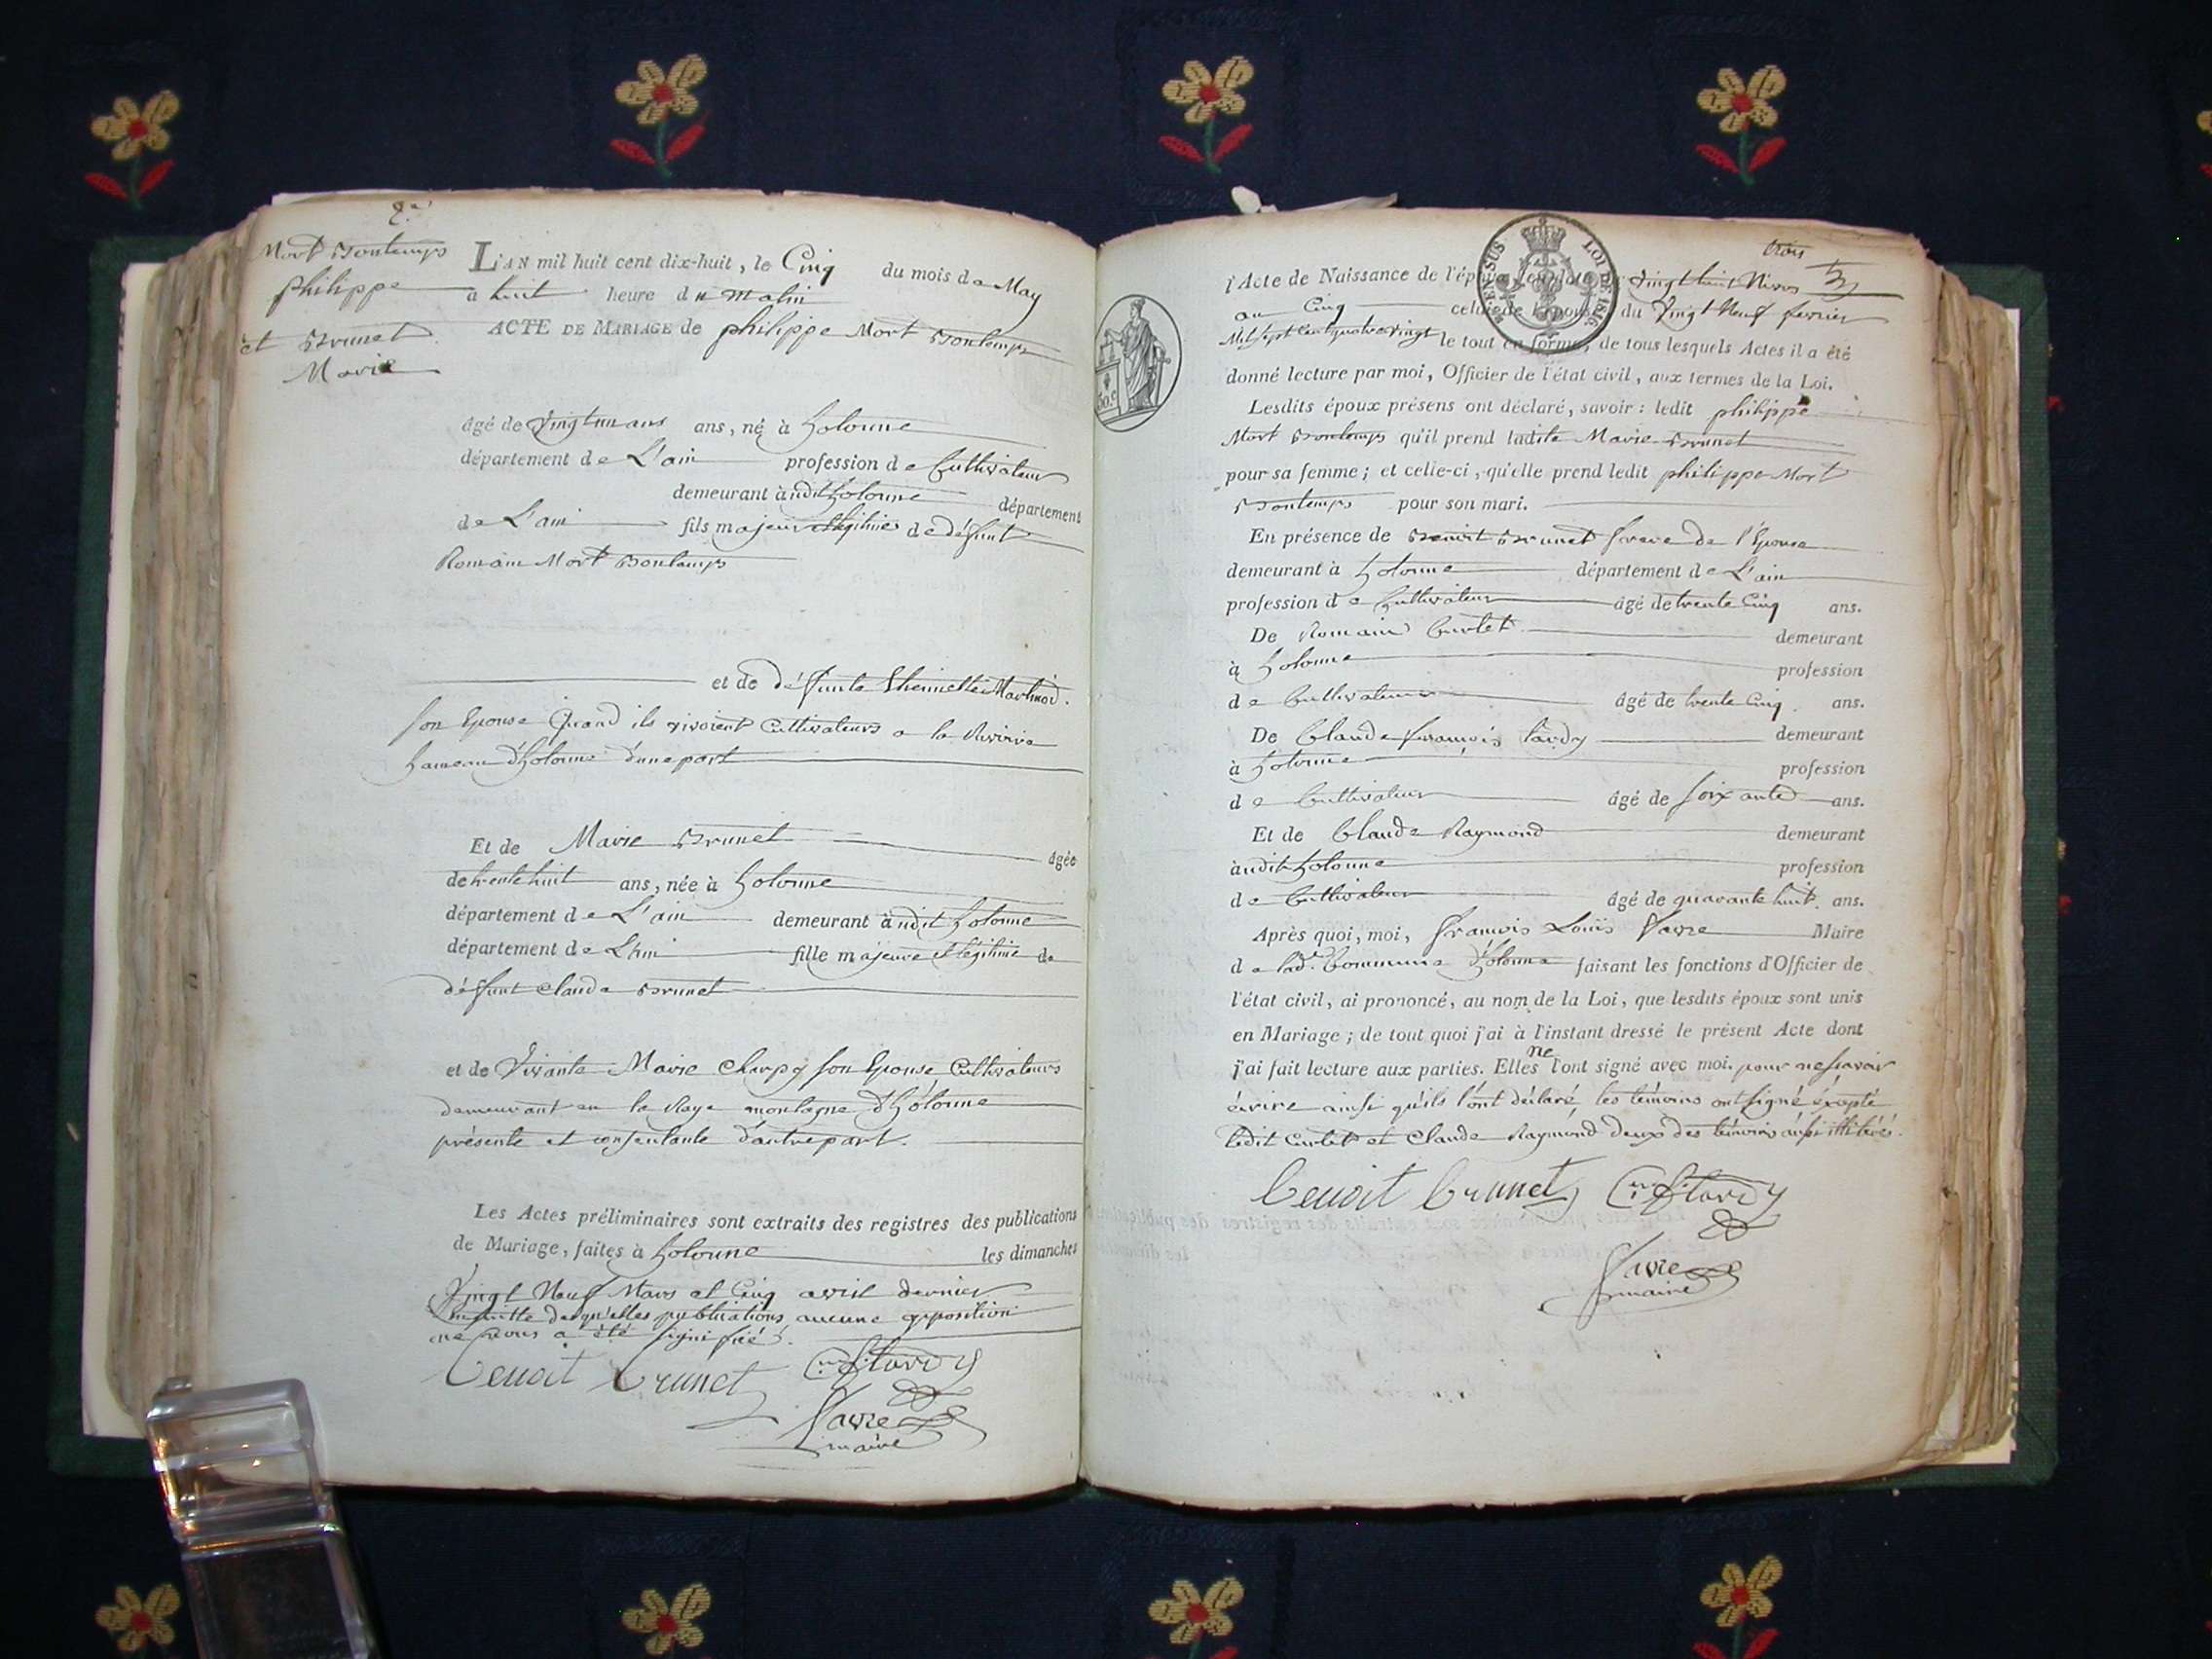 2.e
Mort Bontemps
philippe
et Brunet
Marie
L'AN mil huit cent dix-huit, le Cinq du mois de May
a huit heure du matin
ACTE DE MARIAGE de philippe Mort Bontemps
âgé de vingt un ans ans, né à holonne
département de L'ain profession de Cultivateur
demeurant audit holonne département
de L'ain fils majeur et légitime de défunt
Romain Mort Bontemps
et de défunte
son Epouse Quand ils vivoient Cultivateurs a la
hameau d'holonne d'une part
Et de Marie Brunet agée
de trente huit ans, née à holonne
département de L'ain demeurant audit holonne
département de L'ain fille majeure et légitime de
défunt Claude Brunet
et de vivante Marie Charpy son Epouse Cultivateurs
demeurant en la montagne d'holonne
présente et consentante d'autre part.
Les Actes préliminaires sont extraits des registres des publications
de Mariage, faites à holonne les dimanches
vingt Neuf Mars et Cinq avril dernier
ensuitte desqu'elles publications aucune opposition
ne nous a été signifiée.
Benoit Brunet C. f. tardy
Favre
maire
trois
3
TIMB. EN SUS
LOI DE 1816
30.c
l'Acte de Naissance de l'époux en date du vingt huit Nivos
an Cinq celui de l'épouse du vingt Neuf fevrier
Mil sept cent quatre vingt le tout en forme; de tous lesquels Actes il a été
donné lecture par moi, Officier de l'état civil, aux termes de la Loi.
Lesdits époux présens ont déclaré, savoir: ledit philippe
Mort Bontemps qu'il prend ladite Marie Brunet
pour sa femme; et celle-ci, qu'elle prend ledit philippe Mort
Bontemps pour son mari.
En présence de Benoit Brunet frere de l'Epouse
demeurant à holonne département de L'ain
profession de Cultivateur âgé de trente Cinq ans.
De Romain Curlet demeurant
à holonne profession
de Cultivateur âgé de trente Cinq ans.
De Claude françois tardy demeurant
à holonne profession
de Cultivateur âgé de soixante ans.
Et de Claude Raymond demeurant
audit holonne profession
de Cultivateur âgé de quarante huit ans.
Après quoi, moi, françois Louis Favre Maire
de lad.e Commune d'holonne faisant les fonctions d'Officier de
l'état civil, ai prononcé, au nom de la Loi, que lesdits époux sont unis
en Mariage; de tout quoi j'ai à l'instant dressé le présent Acte dont
j'ai fait lecture aux parties. Elles ne l'ont signé avec moi. pour ne savoir
écrire ainsi qu'ils l'ont déclaré, les témoins ont signé éxcepté
ledit Curlet et Claude Raymond deux des témoins aussi illiterés.
Benoit Brunet C. f. tardy
Favre
maire